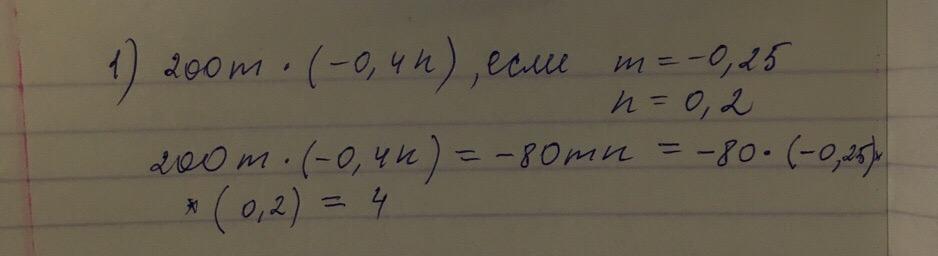 1) 200m · (-0,4n), если m = -0,25
n = 0,2
200m · (-0,4n) = -80mn = -80 · (-0,25)*
* (0,2) = 4